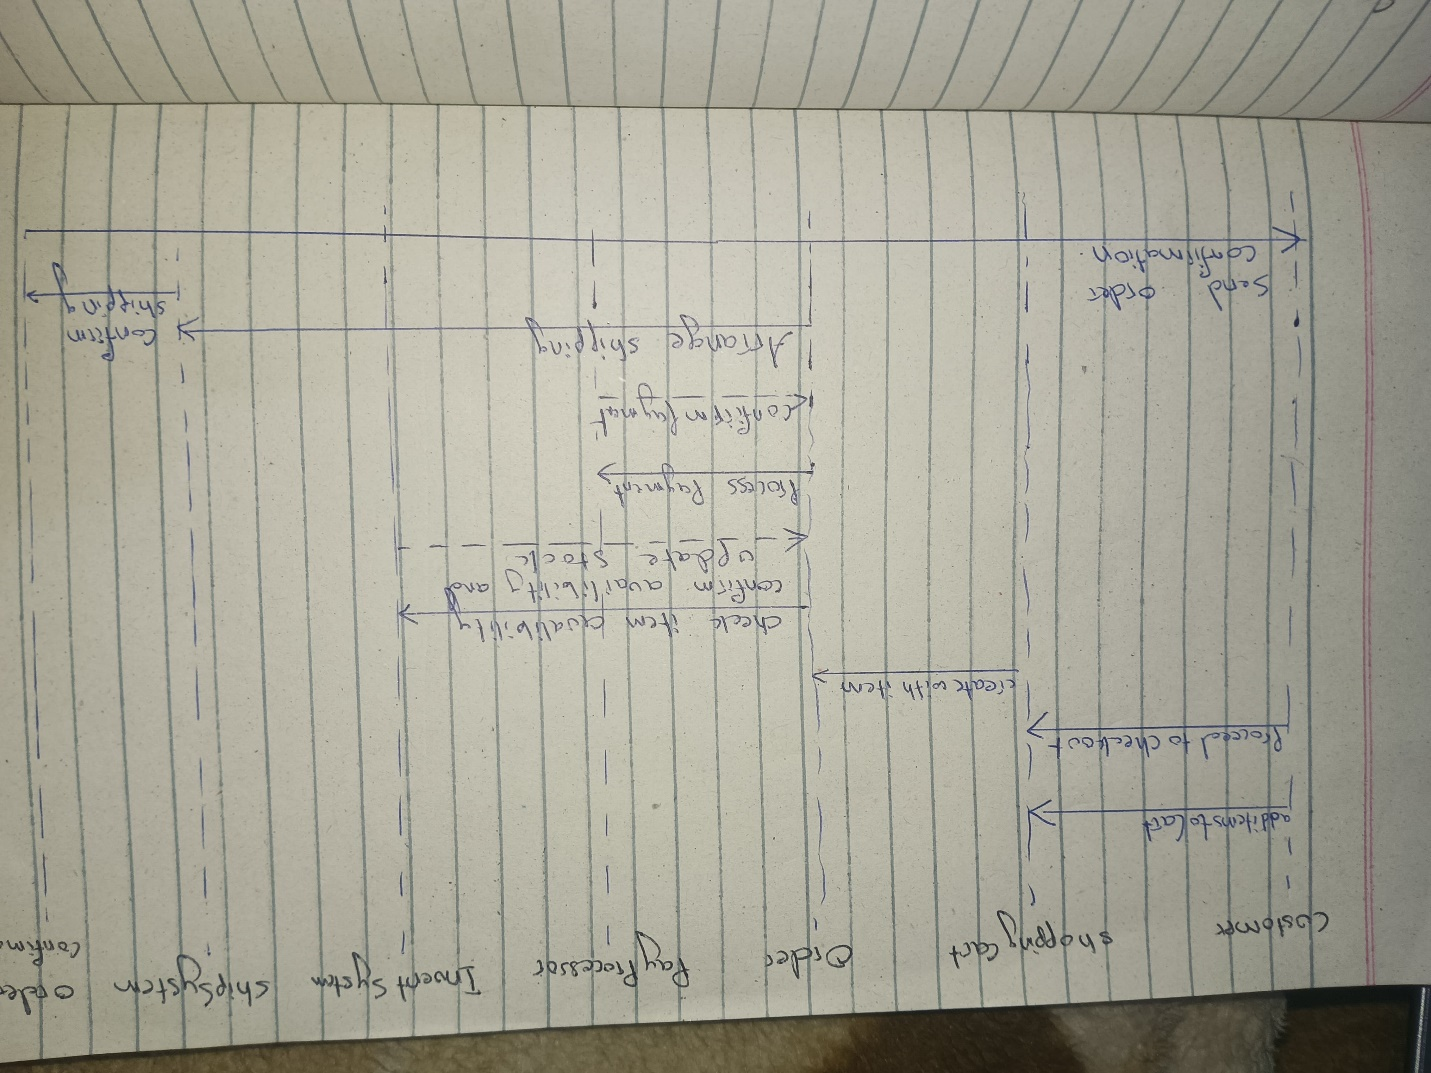 Customer shopping Cart Order PayProcessor Invent System shipSystem Order
Confirma
additemstoCart
Proceed to checkout
create with item
check item availibility
confirm availibility and
update stock
Process Payment
Confirm Paymat
Arrange shipping
Confirm
shipping
Send order
Confirmation.